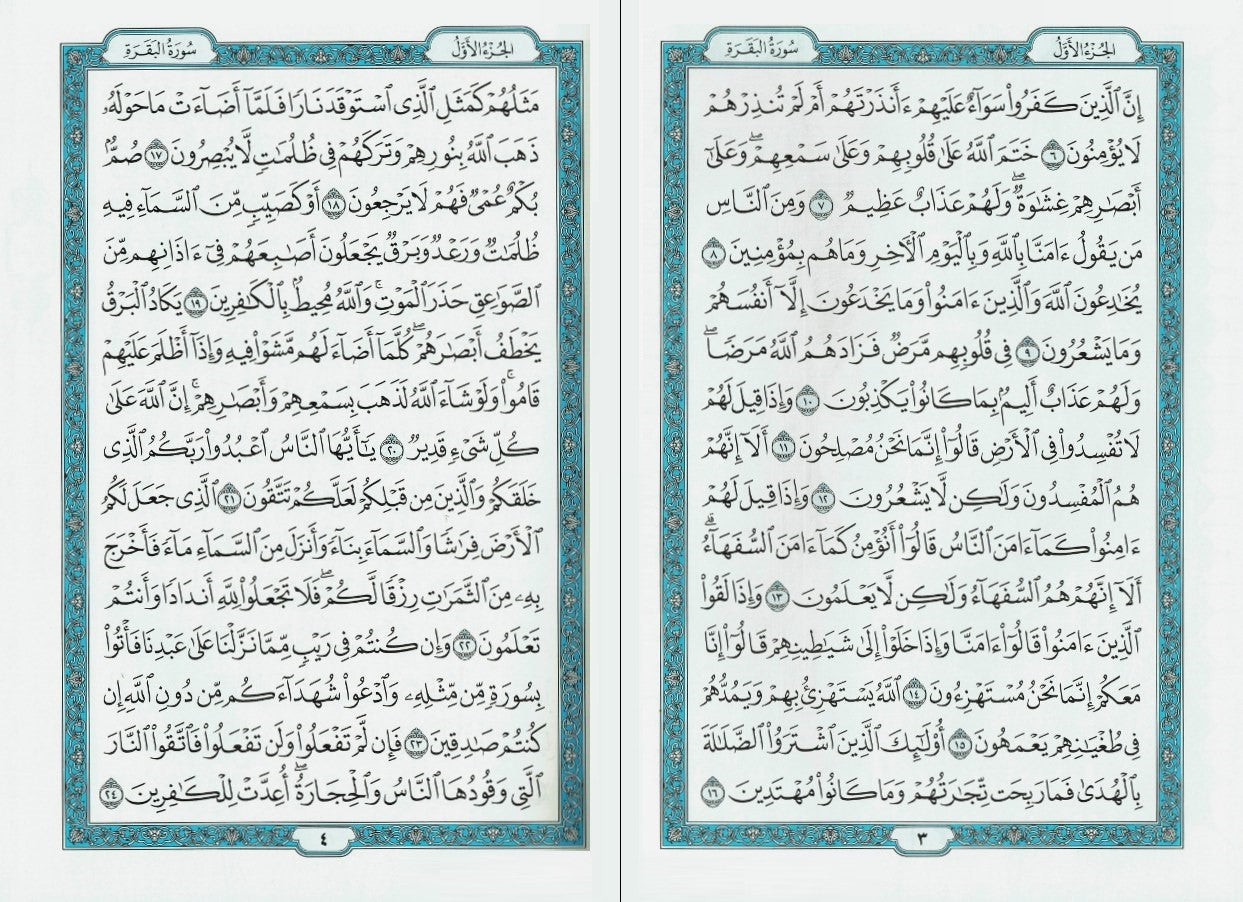 الجزء الأول
سورة البقرة
إِنَّ ٱلَّذِينَ كَفَرُوا۟ سَوَآءٌ عَلَيْهِمْ ءَأَنذَرْتَهُمْ أَمْ لَمْ تُنذِرْهُمْ
لَا يُؤْمِنُونَ ٦ خَتَمَ ٱللَّهُ عَلَىٰ قُلُوبِهِمْ وَعَلَىٰ سَمْعِهِمْ ۖ وَعَلَىٰٓ
أَبْصَٰرِهِمْ غِشَٰوَةٌ ۖ وَلَهُمْ عَذَابٌ عَظِيمٌ ٧ وَمِنَ ٱلنَّاسِ
مَن يَقُولُ ءَامَنَّا بِٱللَّهِ وَبِٱلْيَوْمِ ٱلْءَاخِرِ وَمَا هُم بِمُؤْمِنِينَ ٨
يُخَٰدِعُونَ ٱللَّهَ وَٱلَّذِينَ ءَامَنُوا۟ وَمَا يَخْدَعُونَ إِلَّآ أَنفُسَهُمْ
وَمَا يَشْعُرُونَ ٩ فِى قُلُوبِهِم مَّرَضٌ فَزَادَهُمُ ٱللَّهُ مَرَضًا ۖ
وَلَهُمْ عَذَابٌ أَلِيمٌۢ بِمَا كَانُوا۟ يَكْذِبُونَ ١٠ وَإِذَا قِيلَ لَهُمْ
لَا تُفْسِدُوا۟ فِى ٱلْأَرْضِ قَالُوٓا۟ إِنَّمَا نَحْنُ مُصْلِحُونَ ١١ أَلَآ إِنَّهُمْ
هُمُ ٱلْمُفْسِدُونَ وَلَٰكِن لَّا يَشْعُرُونَ ١٢ وَإِذَا قِيلَ لَهُمْ
ءَامِنُوا۟ كَمَآ ءَامَنَ ٱلنَّاسُ قَالُوٓا۟ أَنُؤْمِنُ كَمَآ ءَامَنَ ٱلسُّفَهَآءُ ۗ
أَلَآ إِنَّهُمْ هُمُ ٱلسُّفَهَآءُ وَلَٰكِن لَّا يَعْلَمُونَ ١٣ وَإِذَا لَقُوا۟
ٱلَّذِينَ ءَامَنُوا۟ قَالُوٓا۟ ءَامَنَّا وَإِذَا خَلَوْا۟ إِلَىٰ شَيَٰطِينِهِمْ قَالُوٓا۟ إِنَّا
مَعَكُمْ إِنَّمَا نَحْنُ مُسْتَهْزِءُونَ ١٤ ٱللَّهُ يَسْتَهْزِئُ بِهِمْ وَيَمُدُّهُمْ
فِى طُغْيَٰنِهِمْ يَعْمَهُونَ ١٥ أُو۟لَٰٓئِكَ ٱلَّذِينَ ٱشْتَرَوُا۟ ٱلضَّلَٰلَةَ
بِٱلْهُدَىٰ فَمَا رَبِحَت تِّجَٰرَتُهُمْ وَمَا كَانُوا۟ مُهْتَدِينَ ١٦
٣
الجزء الأول
سورة البقرة
مَثَلُهُمْ كَمَثَلِ ٱلَّذِى ٱسْتَوْقَدَ نَارًا فَلَمَّآ أَضَآءَتْ مَا حَوْلَهُۥ
ذَهَبَ ٱللَّهُ بِنُورِهِمْ وَتَرَكَهُمْ فِى ظُلُمَٰتٍ لَّا يُبْصِرُونَ ١٧ صُمٌّۢ
بُكْمٌ عُمْىٌ فَهُمْ لَا يَرْجِعُونَ ١٨ أَوْ كَصَيِّبٍ مِّنَ ٱلسَّمَآءِ فِيهِ
ظُلُمَٰتٌ وَرَعْدٌ وَبَرْقٌ يَجْعَلُونَ أَصَٰبِعَهُمْ فِىٓ ءَاذَانِهِم مِّنَ
ٱلصَّوَٰعِقِ حَذَرَ ٱلْمَوْتِ ۚ وَٱللَّهُ مُحِيطٌۢ بِٱلْكَٰفِرِينَ ١٩ يَكَادُ ٱلْبَرْقُ
يَخْطَفُ أَبْصَٰرَهُمْ ۖ كُلَّمَآ أَضَآءَ لَهُم مَّشَوْا۟ فِيهِ وَإِذَآ أَظْلَمَ عَلَيْهِمْ
قَامُوا۟ ۚ وَلَوْ شَآءَ ٱللَّهُ لَذَهَبَ بِسَمْعِهِمْ وَأَبْصَٰرِهِمْ ۚ إِنَّ ٱللَّهَ عَلَىٰ
كُلِّ شَىْءٍ قَدِيرٌ ٢٠ يَٰٓأَيُّهَا ٱلنَّاسُ ٱعْبُدُوا۟ رَبَّكُمُ ٱلَّذِى
خَلَقَكُمْ وَٱلَّذِينَ مِن قَبْلِكُمْ لَعَلَّكُمْ تَتَّقُونَ ٢١ ٱلَّذِى جَعَلَ لَكُمُ
ٱلْأَرْضَ فِرَٰشًا وَٱلسَّمَآءَ بِنَآءً وَأَنزَلَ مِنَ ٱلسَّمَآءِ مَآءً فَأَخْرَجَ
بِهِۦ مِنَ ٱلثَّمَرَٰتِ رِزْقًا لَّكُمْ ۖ فَلَا تَجْعَلُوا۟ لِلَّهِ أَندَادًا وَأَنتُمْ
تَعْلَمُونَ ٢٢ وَإِن كُنتُمْ فِى رَيْبٍ مِّمَّا نَزَّلْنَا عَلَىٰ عَبْدِنَا فَأْتُوا۟
بِسُورَةٍ مِّن مِّثْلِهِۦ وَٱدْعُوا۟ شُهَدَآءَكُم مِّن دُونِ ٱللَّهِ إِن
كُنتُمْ صَٰدِقِينَ ٢٣ فَإِن لَّمْ تَفْعَلُوا۟ وَلَن تَفْعَلُوا۟ فَٱتَّقُوا۟ ٱلنَّارَ
ٱلَّتِى وَقُودُهَا ٱلنَّاسُ وَٱلْحِجَارَةُ ۖ أُعِدَّتْ لِلْكَٰفِرِينَ ٢٤
٤